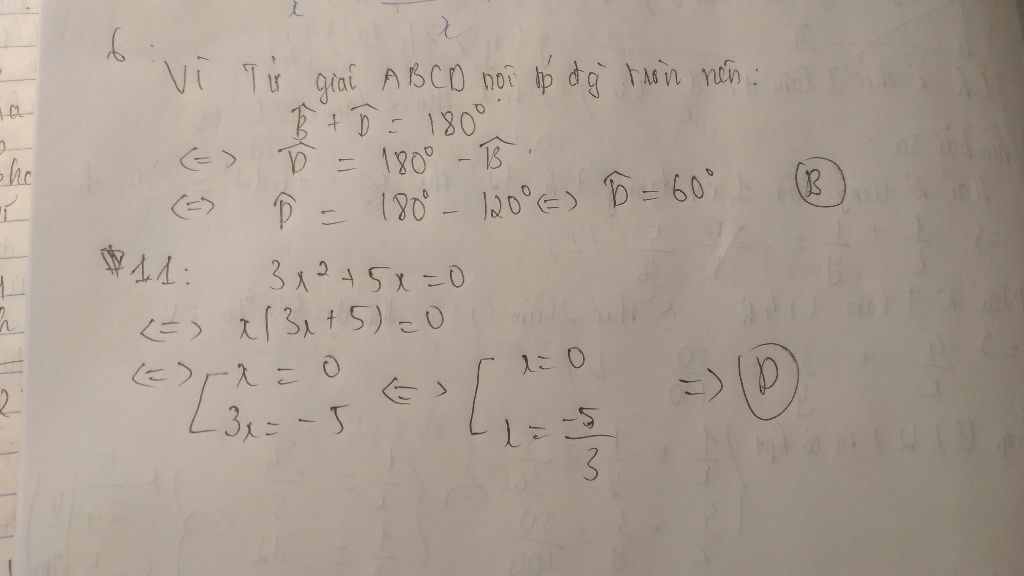 6.
Vì Tứ giác ABCD nội tiếp đg tròn nên:
B̂ + D̂ = 180°
<=> D̂ = 180° - B̂.
<=> D̂ = 180° - 120° <=> D̂ = 60° (B)
11: 3x² + 5x = 0
<=> x(3x + 5) = 0
<=> [ x = 0 <=> [ x = 0 => (D)
3x = -5 x = -5/3